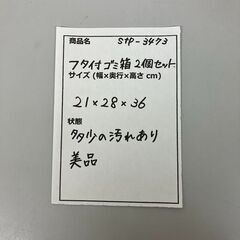 商品名 stp-3473
フタ付ゴミ箱 2個セット
サイズ (幅×奥行×高さ cm)
21×28×36
状態
多少の汚れあり
美品